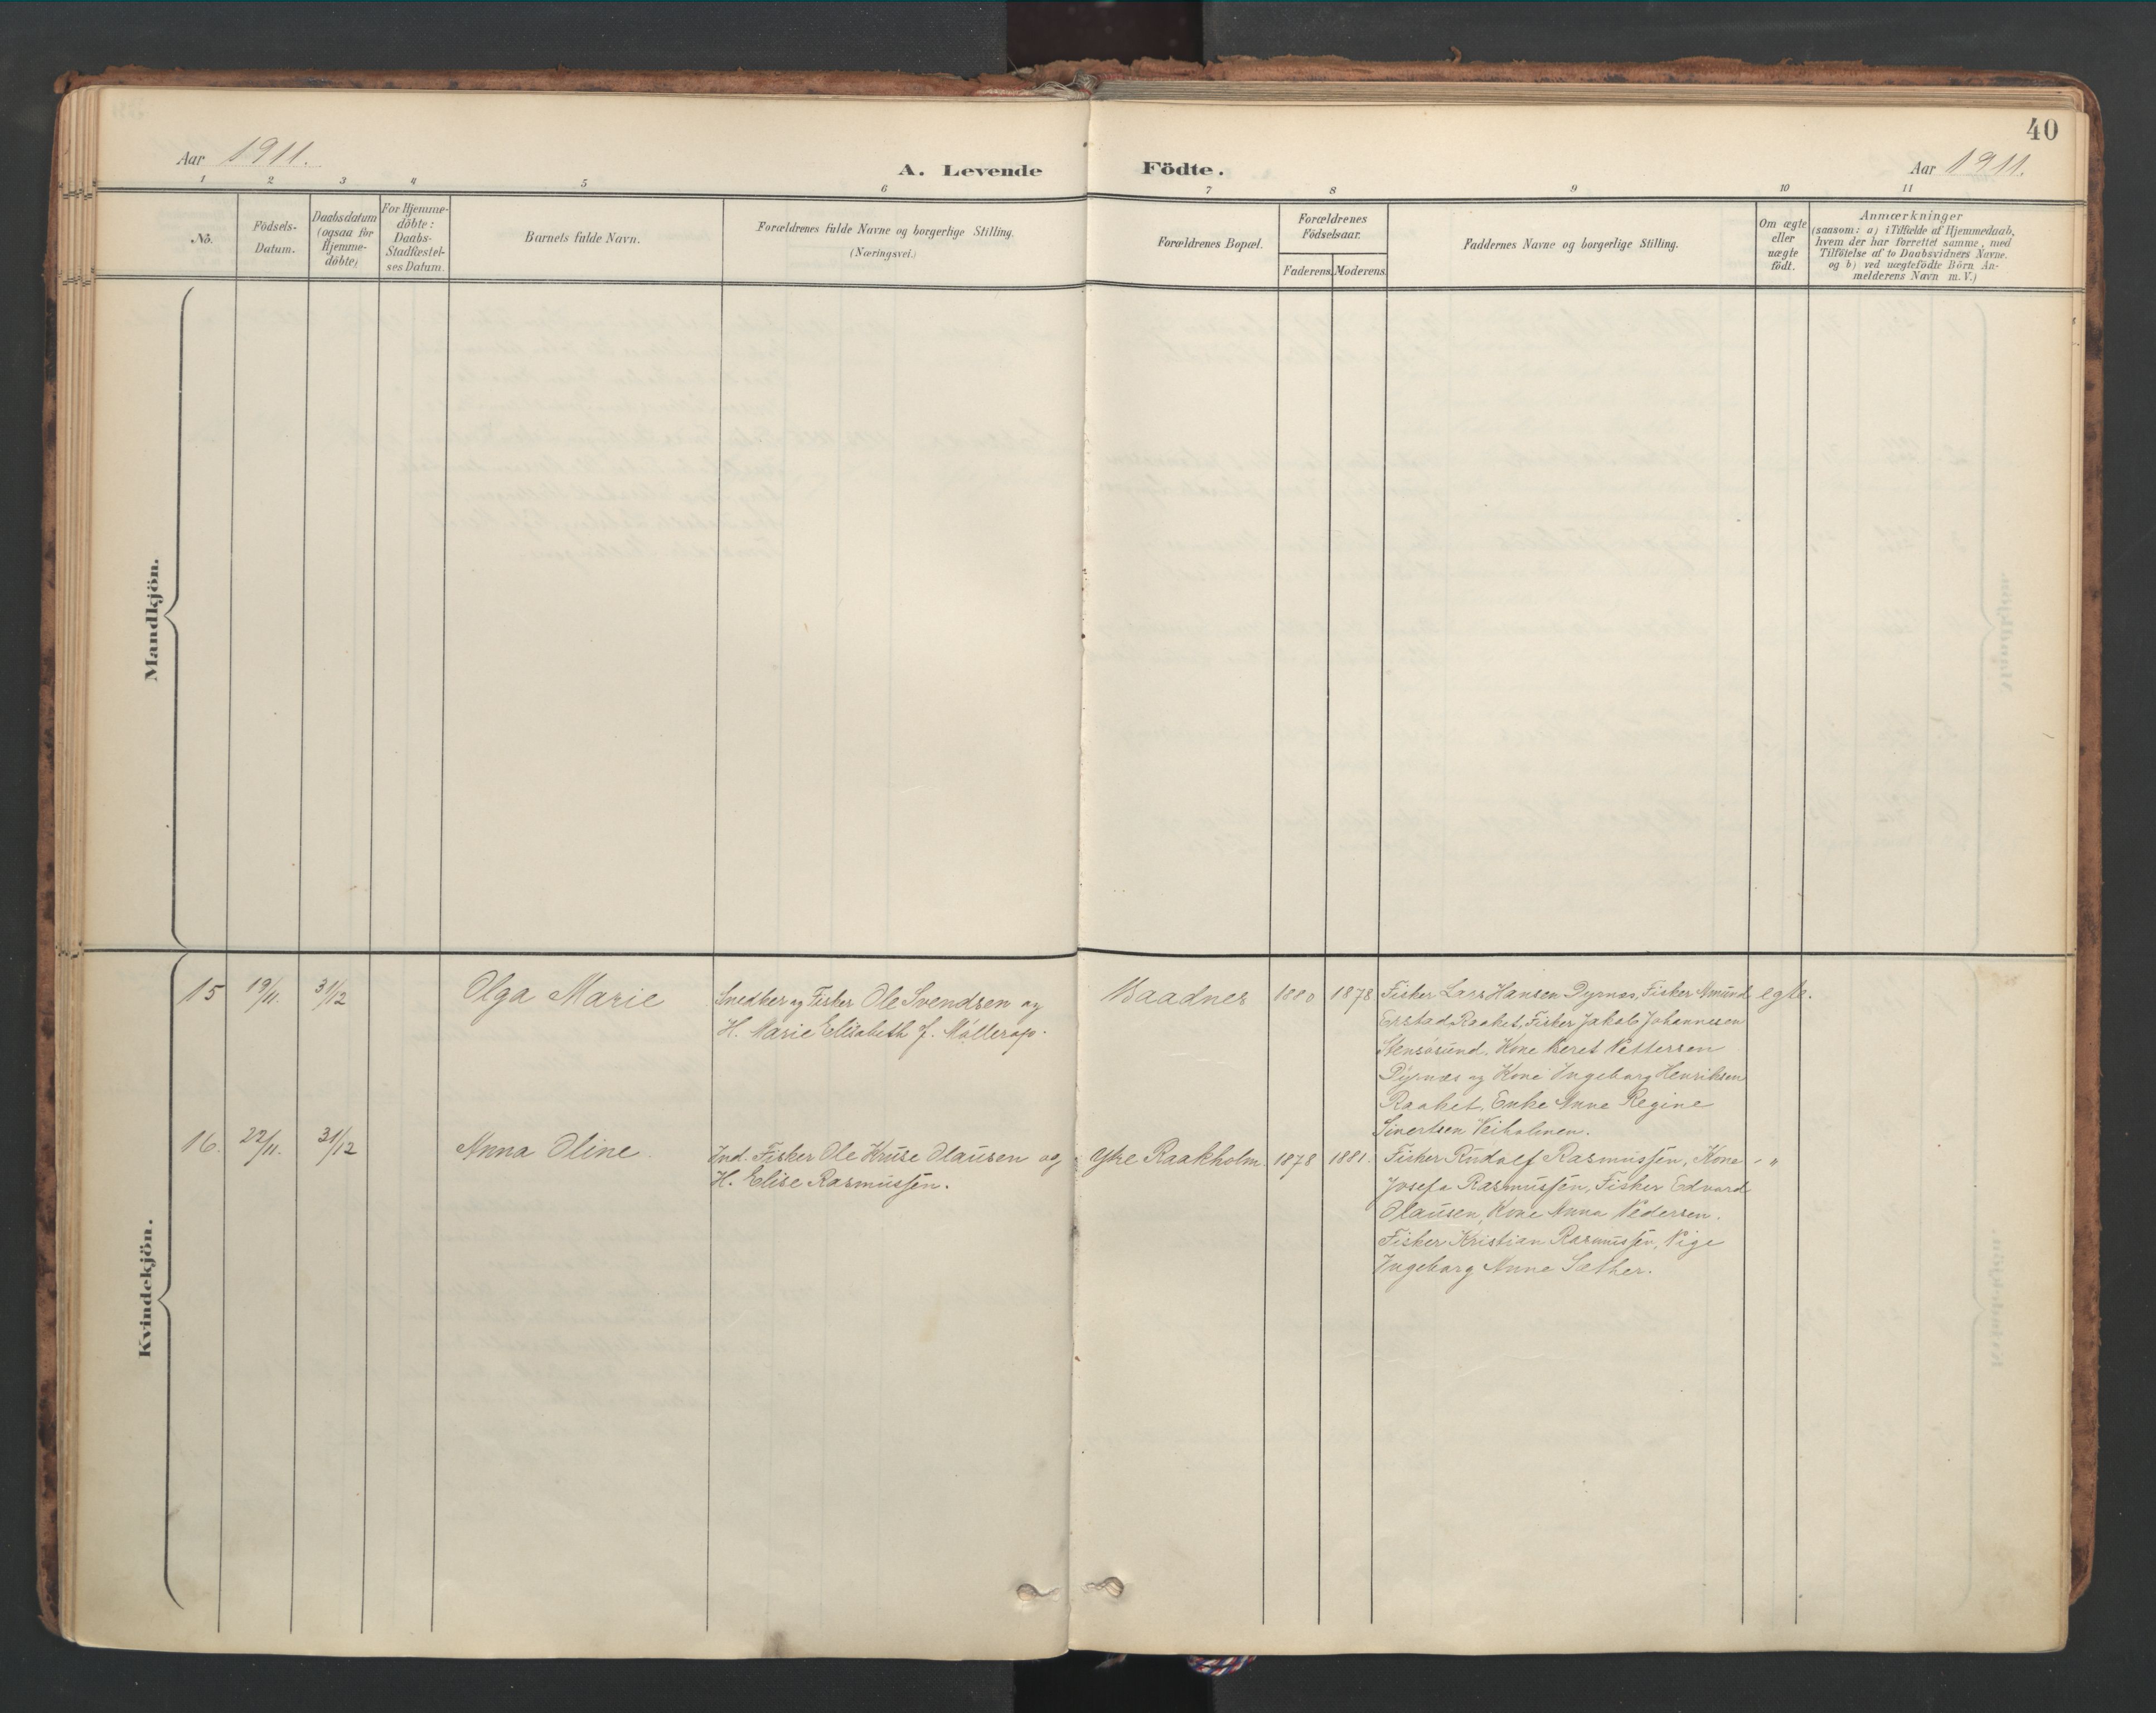 40
Aar 1911.
A. Levende Födte.
Aar 1911.
1 2 3 4 5 6 7 8 9 10 11
No.
Födsels-
Datum.
Daabsdatum
(ogsaa for
Hjemme-
döbte)
For Hjemme-
döbte:
Daabs-
Stadfæstel-
ses Datum.
Barnets fulde Navn.
Forældrenes fulde Navne og borgerlige Stilling.
(Næringsvei.)
Forældrenes Bopæl.
Forældrenes
Födselsaar.
Faderens. Moderens.
Faddernes Navne og borgerlige Stilling.
Om ægte
eller
uægte
födt.
Anmærkninger
(saasom: a) i Tilfælde af Hjemmedaab,
hvem der har forrettet samme, med
Tilföielse af to Daabsvidners Navne.
og b) ved uægtefödte Börn An-
melderens Navn m. V.)
Mandkjön.
Kvindekjön.
15 19/11. 31/12 Olga Marie
Snedker og Fisker Ole Svendsen og
H. Marie Elisabeth f. Möllerop.
Baadnes 1880 1878
Fisker Lars Hansen Dyrnæs, Fisker Amund
Erstad Raaket, Fisker Jakob Johannesen
Stensösund. Kone Beret Pettersen
Dyrnæs og Kone Ingeborg Henriksen
Raaket, Enke Anne Regine
Sivertsen Veiholmen.
egte.
16. 22/11. 31/12 Anna Oline.
Ind. Fisker Ole Kruse Olausen og
H. Elise Rasmussen.
Ytre Raakholm. 1878 1881.
Fisker Rudolf Rasmussen, Kone
Josefa Rasmussen, Fisker Edvard
Olausen, Kone Anna Pedersen.
Fisker Kristian Rasmussen, Pige
Ingeborg Anna Sæther.
- "